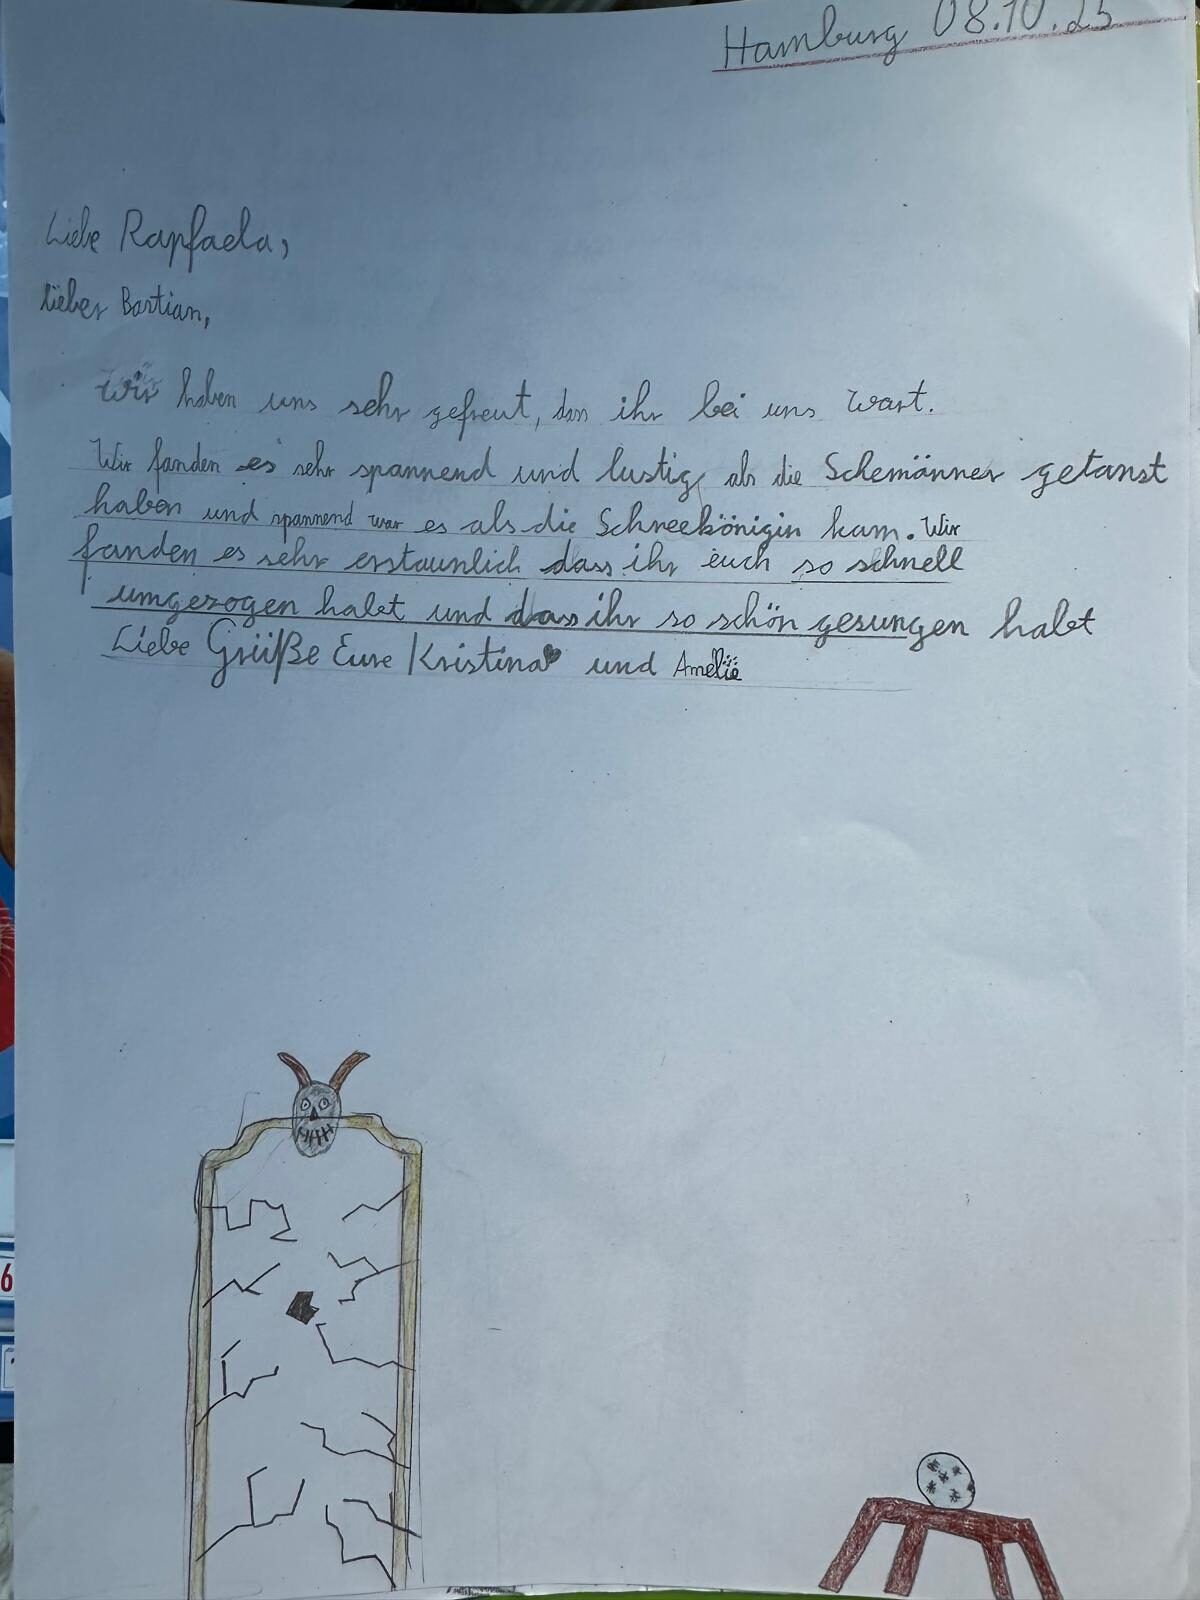 Hamburg 08.10.25
Liebe Rapfaela,
lieber Bastian,
Wir haben uns sehr gefreut, dass ihr bei uns wart.
Wir fanden es sehr spannend und lustig, als die Schemänner getanst
haben und spannend war es als die Schneekönigin kam. Wir
fanden es sehr erstaunlich dass ihr euch so schnell
umgezogen habt und dass ihr so schön gesungen habt
Liebe Grüße Eure Kristina und Amelie
6